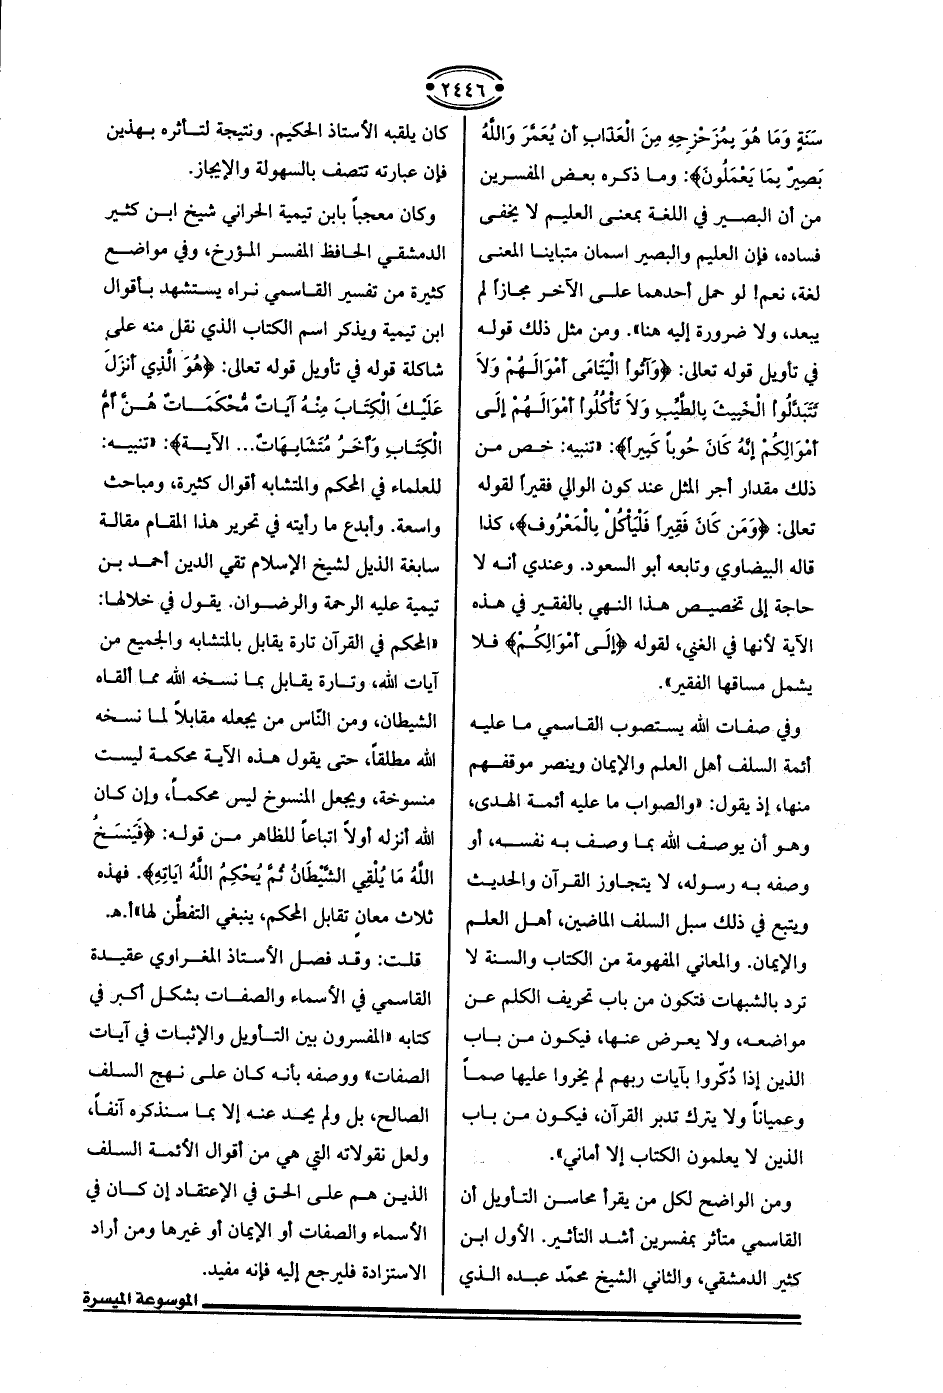 ٢٤٤٦
سَنَةٍ وَمَا هُوَ بِمُزَحْزِحِهِ مِنَ الْعَذَابِ أَن يُعَمَّرَ وَاللَّهُ
بَصِيرٌ بِمَا يَعْمَلُونَ﴾: وما ذكره بعض المفسرين
من أن البصير في اللغة بمعنى العليم لا يخفى
فساده، فإن العليم والبصير اسمان متباينا المعنى
لغة، نعم! لو حمل أحدهما على الآخر مجازاً لم
يبعد، ولا ضرورة إليه هنا». ومن مثل ذلك قوله
في تأويل قوله تعالى: ﴿وَآتُواْ الْيَتَامَى أَمْوَالَهُمْ وَلاَ
تَتَبَدَّلُواْ الْخَبِيثَ بِالطَّيِّبِ وَلاَ تَأْكُلُواْ أَمْوَالَهُمْ إِلَى
أَمْوَالِكُمْ إِنَّهُ كَانَ حُوباً كَبِيراً﴾: «تنبيه: خص من
ذلك مقدار أجر المثل عند كون الوالي فقيراً لقوله
تعالى: ﴿وَمَن كَانَ فَقِيراً فَلْيَأْكُلْ بِالْمَعْرُوفِ﴾، كذا
قاله البيضاوي وتابعه أبو السعود. وعندي أنه لا
حاجة إلى تخصيص هذا النهي بالفقير في هذه
الآية لأنها في الغني، لقوله ﴿إِلَى أَمْوَالِكُمْ﴾ فلا
يشمل مساقها الفقير».
وفي صفات الله يستصوب القاسمي ما عليه
أئمة السلف أهل العلم والإيمان وينصر موقفهم
منها، إذ يقول: «والصواب ما عليه أئمة الهدى،
وهو أن يوصف الله بما وصف به نفسه، أو
وصفه به رسوله، لا يتجاوز القرآن والحديث
ويتبع في ذلك سبل السلف الماضين، أهل العلم
والإيمان. والمعاني المفهومة من الكتاب والسنة لا
ترد بالشبهات فتكون من باب تحريف الكلم عن
مواضعه، ولا يعرض عنها، فيكون من باب
الذين إذا ذُكّروا بآيات ربهم لم يخروا عليها صماً
وعمياناً ولا يترك تدبر القرآن، فيكون من باب
الذين لا يعلمون الكتاب إلا أماني».
ومن الواضح لكل من يقرأ محاسن التأويل أن
القاسمي متأثر بمفسرين أشد التأثير. الأول ابن
كثير الدمشقي، والثاني الشيخ محمّد عبده الذي
كان يلقبه الأستاذ الحكيم. ونتيجة لتأثره بهذين
فإن عبارته تتصف بالسهولة والإيجاز.
وكان معجباً بابن تيمية الحراني شيخ ابن كثير
الدمشقي الحافظ المفسر المؤرخ، وفي مواضع
كثيرة من تفسير القاسمي نراه يستشهد بأقوال
ابن تيمية ويذكر اسم الكتاب الذي نقل منه على
شاكلة قوله في تأويل قوله تعالى: ﴿هُوَ الَّذِي أَنزَلَ
عَلَيْكَ الْكِتَابَ مِنْهُ آيَاتٌ مُّحْكَمَاتٌ هُنَّ أُمُّ
الْكِتَابِ وَأُخَرُ مُتَشَابِهَاتٌ... الآية﴾: «تنبيه:
للعلماء في المحكم والمتشابه أقوال كثيرة، ومباحث
واسعة. وأبدع ما رأيته في تحرير هذا المقام مقالة
سابغة الذيل لشيخ الإسلام تقي الدين أحمد بن
تيمية عليه الرحمة والرضوان. يقول في خلالها:
«المحكم في القرآن تارة يقابل بالمتشابه والجميع من
آيات الله، وتارة يقابل بما نسخه الله مما ألقاه
الشيطان، ومن النّاس من يجعله مقابلاً لما نسخه
الله مطلقاً، حتى يقول هذه الآية محكمة ليست
منسوخة، ويجعل المنسوخ ليس محكماً، وإن كان
الله أنزله أولاً اتباعاً للظاهر من قوله: ﴿فَيَنسَخُ
اللَّهُ مَا يُلْقِي الشَّيْطَانُ ثُمَّ يُحْكِمُ اللَّهُ ايَاتِهِ﴾. فهذه
ثلاث معانٍ تقابل المحكم، ينبغي التفطّن لها»أ.هـ.
قلت: وقد فصل الأستاذ المغراوي عقيدة
القاسمي في الأسماء والصفات بشكل أكبر في
كتابه «المفسرون بين التأويل والإثبات في آيات
الصفات» ووصفه بأنه كان على نهج السلف
الصالح، بل ولم يحد عنه إلا بما سنذكره آنفاً،
ولعل نقولاته التي هي من أقوال الأئمة السلف
الذين هم على الحق في الإعتقاد إن كان في
الأسماء والصفات أو الإيمان أو غيرها ومن أراد
الاستزادة فليرجع إليه فإنه مفيد.
الموسوعة الميسرة